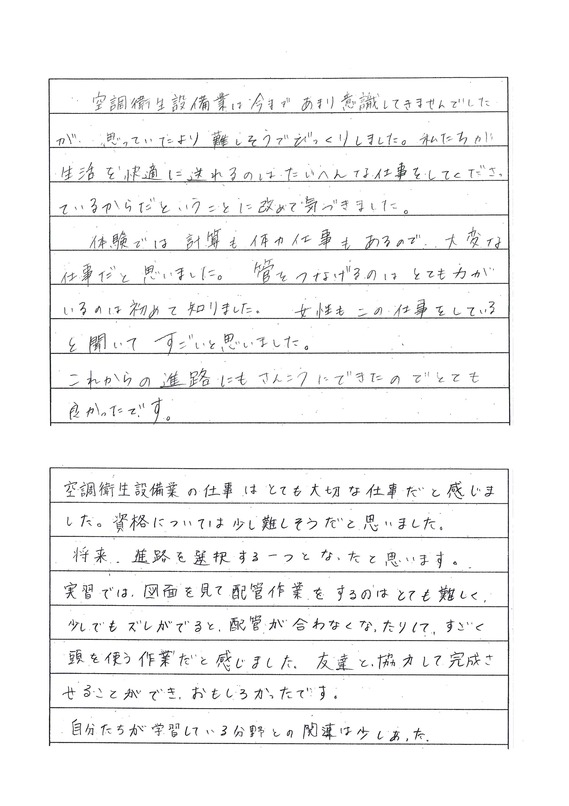 空調衛生設備業は今まであまり意識してきませんでした
が、思っていたより難しそうでびっくりしました。私たちが
生活を快適に送れるのはたいへんな仕事をしてくださっ
ているからだということに改めて気づきました。
体験では計算も体力仕事もあるので、大変な
仕事だと思いました。管をつなげるのはとても力が
いるのは初めて知りました。女性もこの仕事をしている
と聞いてすごいと思いました。
これからの進路にもさんこうにできたのでとても
良かったです。
空調衛生設備業の仕事はとても大切な仕事だと感じま
した。資格については少し難しそうだと思いました。
将来、進路を選択する一つとなったと思います。
実習では、図面を見て配管作業をするのはとても難しく、
少しでもズレがでると、配管が合わなくなったりして、すごく
頭を使う作業だと感じました。友達と協力して完成さ
せることができ、おもしろかったです。
自分たちが学習している分野との関連は少しあった。